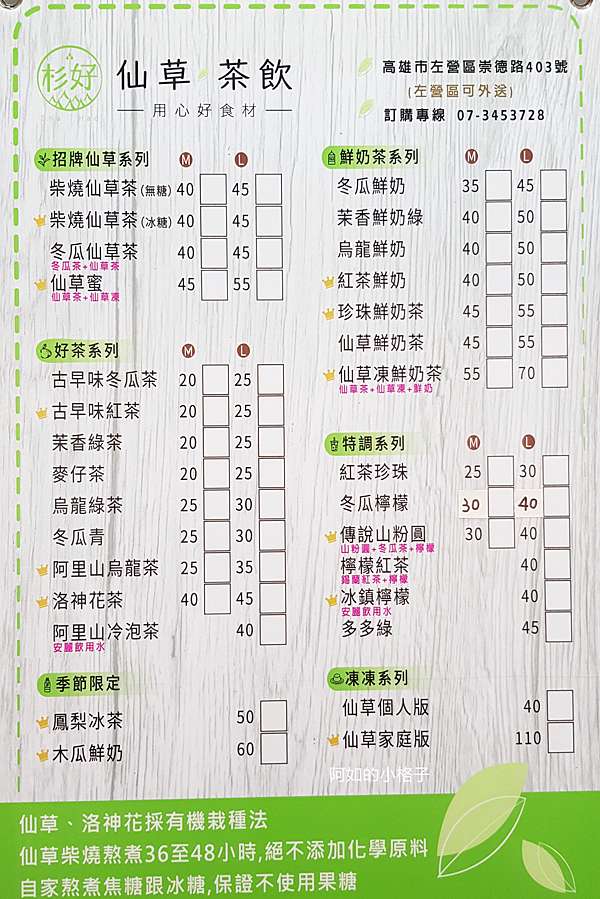 杉好
仙草茶飲
用心好食材
高雄市左營區崇德路403號
(左營區可外送)
訂購專線 07-3453728
招牌仙草系列 M L
柴燒仙草茶(無糖) 40 45
柴燒仙草茶(冰糖) 40 45
冬瓜仙草茶 40 45
冬瓜茶+仙草茶
仙草蜜 45 55
仙草茶+仙草凍
好茶系列 M L
古早味冬瓜茶 20 25
古早味紅茶 20 25
茉香綠茶 20 25
麥仔茶 20 25
烏龍綠茶 25 30
冬瓜青 25 30
阿里山烏龍茶 25 35
洛神花茶 40 45
阿里山冷泡茶 40
安麗飲用水
季節限定
鳳梨冰茶 50
木瓜鮮奶 60
鮮奶茶系列 M L
冬瓜鮮奶 35 45
茉香鮮奶綠 40 50
烏龍鮮奶 40 50
紅茶鮮奶 40 50
珍珠鮮奶茶 45 55
仙草鮮奶茶 45 55
仙草凍鮮奶茶 55 70
仙草茶+仙草凍+鮮奶
特調系列 M L
紅茶珍珠 25 30
冬瓜檸檬 30 40
傳說山粉圓 30 40
山粉圓+冬瓜茶+檸檬
檸檬紅茶 40
錫蘭紅茶+檸檬
冰鎮檸檬 40
安麗飲用水
多多綠 45
凍凍系列
仙草個人版 40
仙草家庭版 110
阿如的小格子
仙草、洛神花採有機栽種法
仙草柴燒熬煮36至48小時,絕不添加化學原料
自家熬煮焦糖跟冰糖,保證不使用果糖